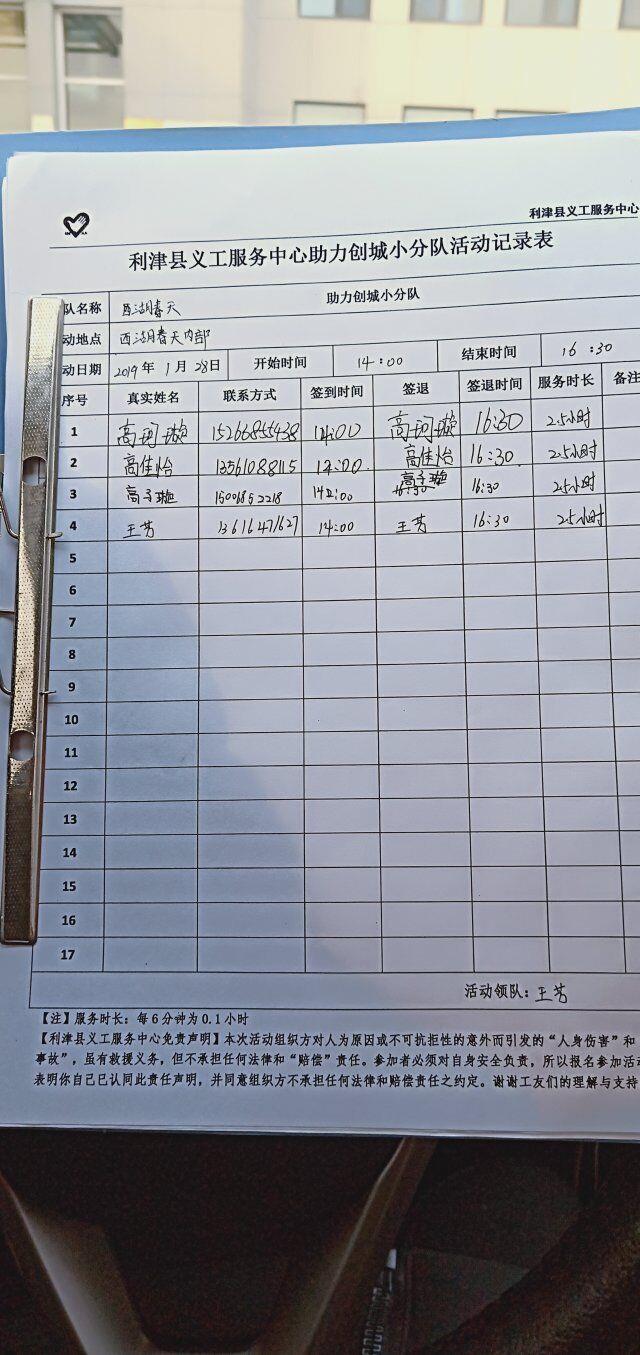 利津县义工服务中心
利津县义工服务中心助力创城小分队活动记录表
队名称 西湖春天 助力创城小分队
动地点 西湖春天内部
动日期 2019年1月28日 开始时间 14:00 结束时间 16:30
序号 真实姓名 联系方式 签到时间 签退 签退时间 服务时长 备注
1 高珂璇 15266855438 14:00 高珂璇 16:30 2.5小时
2 高佳怡 13561088115 14:00 高佳怡 16:30 2.5小时
3 14:00 16:30 2.5小时
4 王芳 13616471627 14:00 王芳 16:30 2.5小时
5
6
7
8
9
10
11
12
13
14
15
16
17
活动领队：王芳
【注】服务时长：每6分钟为0.1小时
【利津县义工服务中心免责声明】本次活动组织方对人为原因或不可抗拒性的意外而引发的“人身伤害”和
事故”，虽有救援义务，但不承担任何法律和“赔偿”责任。参加者必须对自身安全负责，所以报名参加活动
表明你自己已认同此责任声明，并同意组织方不承担任何法律和赔偿责任之约定。谢谢工友们的理解与支持